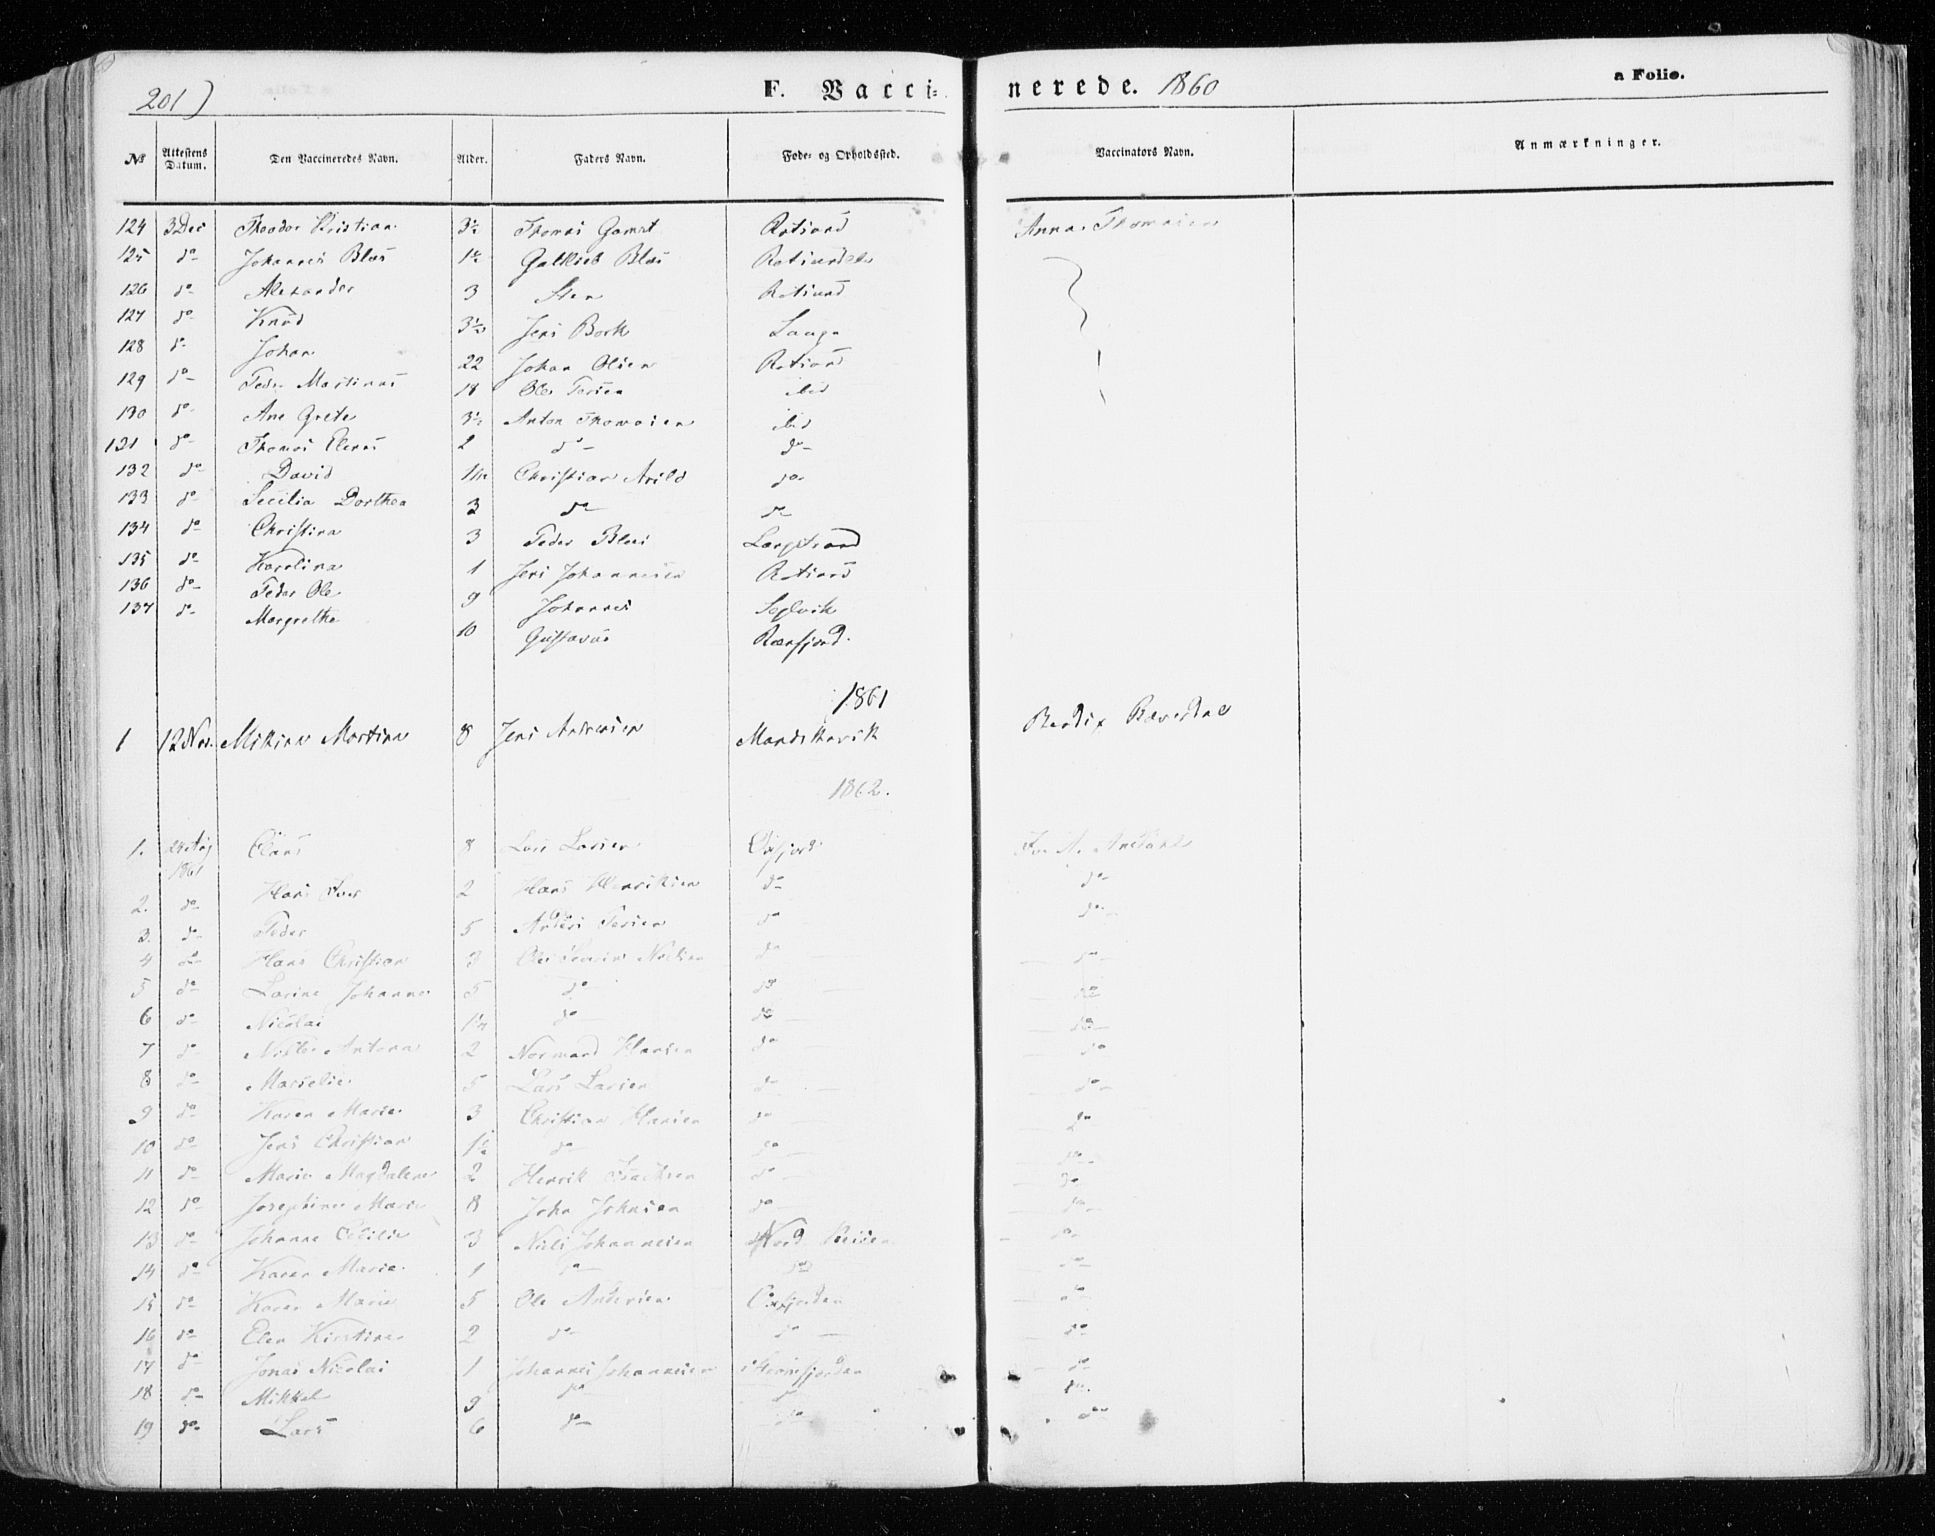 201) F. Vacci= nerede. 1860 a Folio.
No Attestens Datum. Den Vaccineredes Navn. Alder. Faders Navn. Føde- og Opholdssted. Vaccinators Navn. Anmærkninger.
124 3 Dec Theodor Kristian 3½ Thomas Gamst Rotsund Anna Thomasen
125 do Johannes Blæs 1½ Gottlieb Blæs
126 do Alexander 3 Sten Rotsund
127 do Knud 3½ Jens Bork
128 do Johan 22 Johan Olsen Rotsund
129 do Peder Martinus 18 Ole Persen ibid
130 do Ane Grete 3½ Anton Thomasen ibid
131 do Thomas 2 do do
132 do David Christian Arild do
133 do Secilia Dorthea 3 do do
134 do Christina 3 Peder Blæs Langstrand
135 do Karolina 1 Jens Johannesen Rotsund
136 do Peder Ole 9 Johannes Seglvik
137 do Margrethe 10 Gustavus
1861
1 12 Nov. Martina 8 Jens Andersen
1862.
1. 24 Aug 1861 Claus 8 Lars Larsen Oxfjord
2. do Hans Iver 2 Hans Henriksen do do
3. do Peder 5 Anders Persen do do
4 do Hans Christian 3 do do
5 do Lorine Johanne 5 do do do
6 do Nicolai 1½ do do do
7 do 2 Normand Hansen do do
8 do 5 Lars Larsen do do
9 do Karen Marie 3 Christian Hansen do do
10 do Jens Christian 1½ do do do
11 do Marie Magdalene 2 Henrik Isaksen do do
12 do Josephine Marie 8 John Johnsen do do
13 do Johanne Cecilie 3 Nils Johannesen Nord Reisen do
14 do Karen Marie 1 do do do
15 do Karen Marie 5 Ole Andersen Oxfjorden do
16 do Elen Kirstine 2 do do do
17 do Jonas Nicolai 1 Johannes Johannesen do
18 do Mikkel 9 do do do
19 do Lars 6 do do do